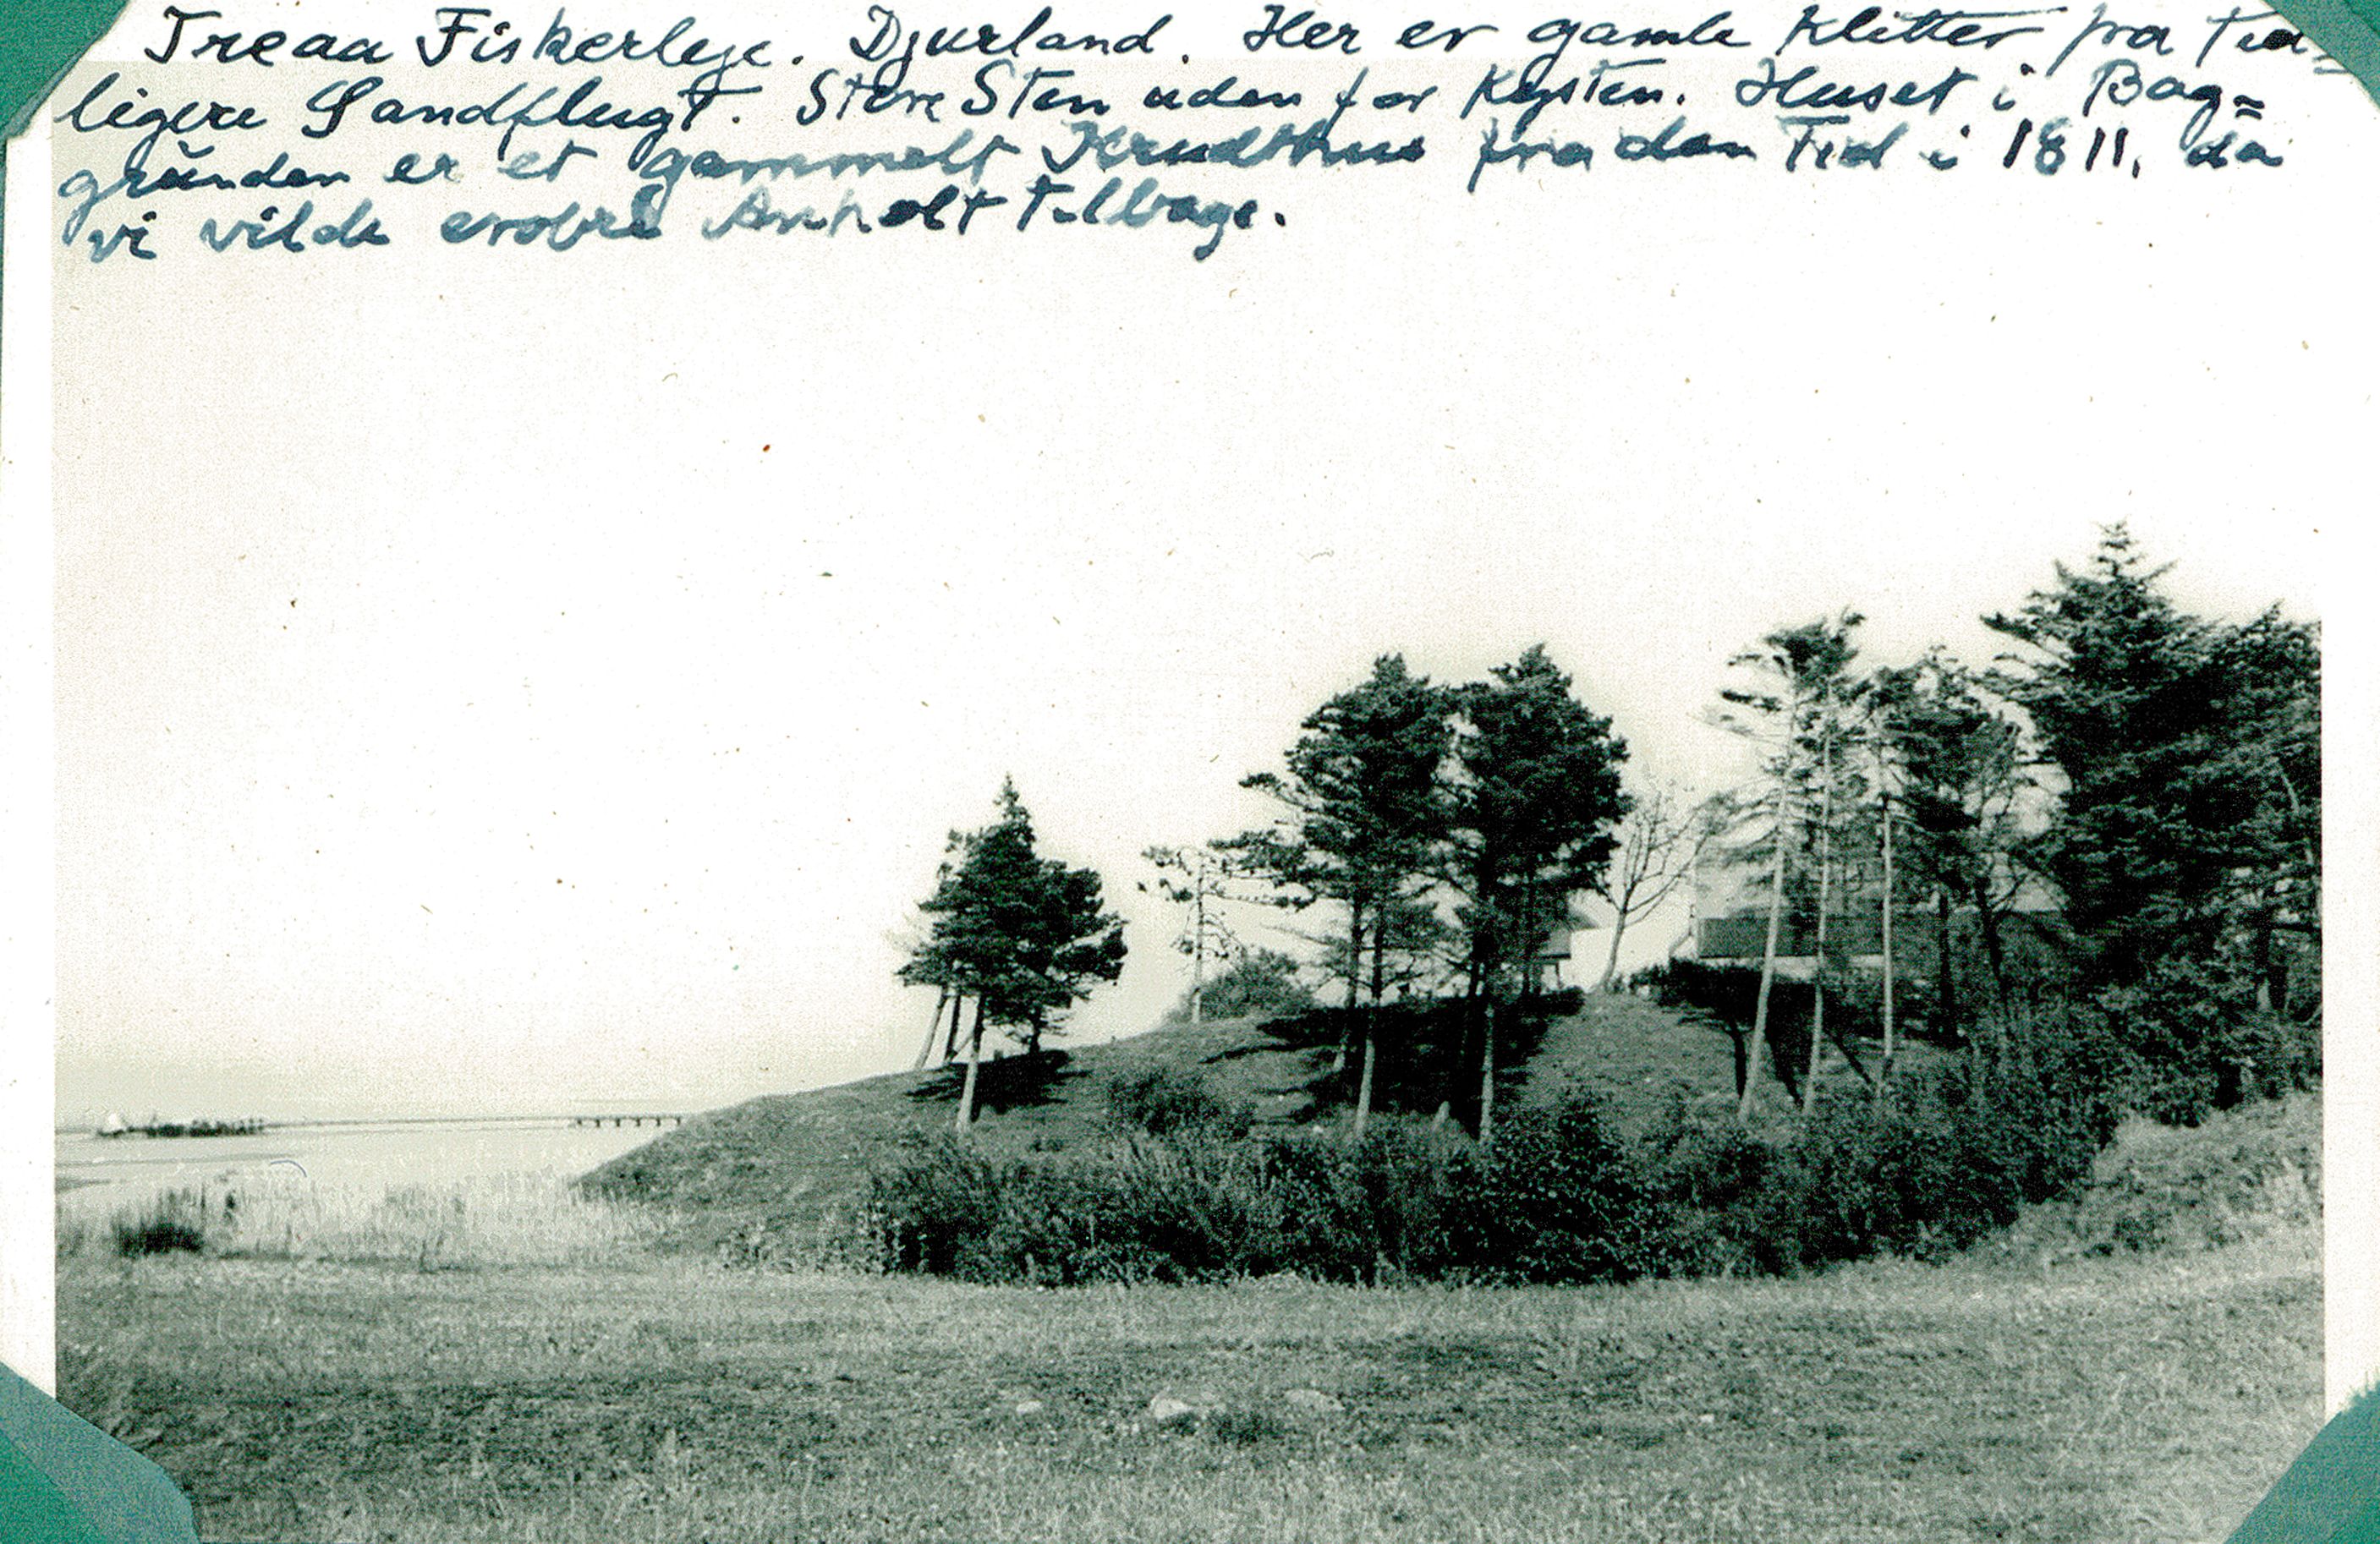 Treaa Fiskerleje. Djursland. Her er gamle Klitter fra tid=
ligere Sandflugt. Store Sten uden for Kysten. Huset i Bag=
grunden er et gammelt Krudthus fra den Tid i 1811, da
vi vilde erobre Anholt tilbage.